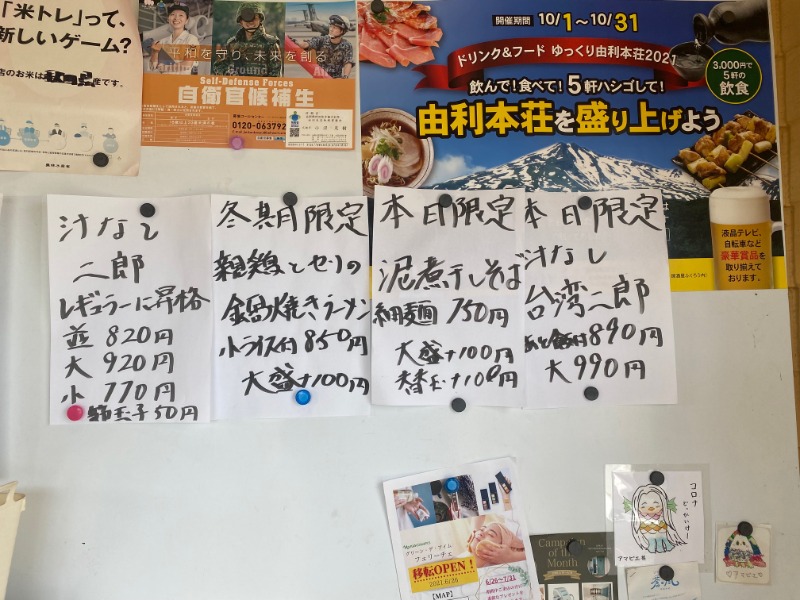 「米トレ」って、
新しいゲーム?
店のお米は
産です。
平和を守り、未来を創る
Self-Defense Forces
自衛官候補生
0120-063792
開催期間 10/1〜10/31
ドリンク&フード ゆっくり由利本荘2021
飲んで!食べて!5軒ハシゴして!
由利本荘を盛り上げよう
3,000円で
5軒の
飲食
液晶テレビ、
自転車など
豪華賞品を
取り揃えて
おります。
汁なし
二郎
レギュラーに昇格
並 820円
大 920円
小 770円
玉子 50円
冬期限定
親鶏とセリの
鍋焼きラーメン
小ライス付 850円
大盛+100円
本日限定
泥煮干しそば
細麺 750円
大盛+100円
替玉+100円
本日限定
汁なし
台湾二郎
あと飯付 890円
大 990円
グリーン・デ・タイム
フェリーチェ
移転OPEN!
2021.6/26
6/26〜7/31
【MAP】
Campaign
of the
Month
コロナ
アマビエ
アマビエ